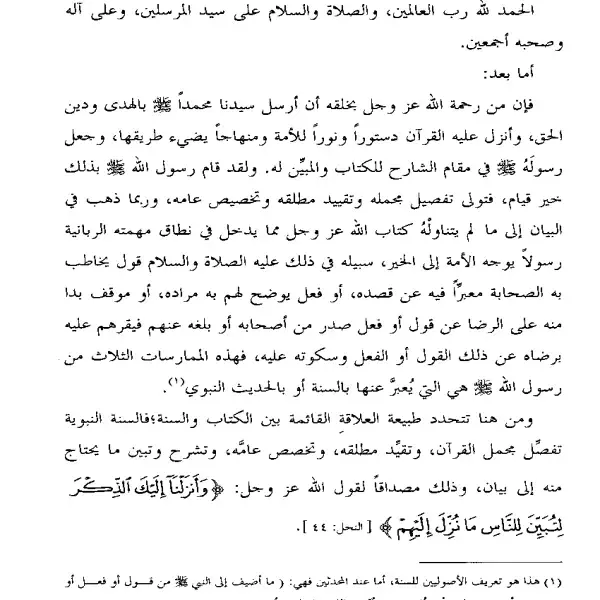 الحمد لله رب العالمين، والصلاة والسلام على سيد المرسلين، وعلى آله
وصحبه أجمعين.
أما بعد:
فإن من رحمة الله عز وجل بخلقه أن أرسل سيدنا محمداً ﷺ بالهدى ودين
الحق، وأنزل عليه القرآن دستوراً ونوراً للأمة ومنهاجاً يضيء طريقها، وجعل
رسولَهُ ﷺ في مقام الشارح للكتاب والمبيِّن له. ولقد قام رسول الله ﷺ بذلك
خير قيام، فتولى تفصيل مجمله وتقييد مطلقه وتخصيص عامه، وربما ذهب في
البيان إلى ما لم يتناولْهُ كتاب الله عز وجل مما يدخل في نطاق مهمته الربانية
رسولاً يوجه الأمة إلى الخير، سبيله في ذلك عليه الصلاة والسلام قول يخاطب
به الصحابة معبرِّاً فيه عن قصده، أو فعل يوضح لهم به مراده، أو موقف بدا
منه على الرضا عن قول أو فعل صدر من أصحابه أو بلغه عنهم فيقرهم عليه
برضاه عن ذلك القول أو الفعل وسكوته عليه، فهذه الممارسات الثلاث من
رسول الله ﷺ هي التي يُعبرَّ عنها بالسنة أو بالحديث النبوي(١).
ومن هنا تتحدد طبيعة العلاقةِ القائمة بين الكتاب والسنة؛فالسنة النبوية
تفصِّل مجمل القرآن، وتقيِّد مطلقه، وتخصص عامَّه، وتشرح وتبين ما يحتاج
منه إلى بيان، وذلك مصداقاً لقول الله عز وجل: ﴿ وَأَنزَلْنَآ إِلَيْكَ ٱلذِّكْرَ
لِتُبَيِّنَ لِلنَّاسِ مَا نُزِّلَ إِلَيْهِمْ ﴾ [ النحل: ٤٤ ].
(١) هذا هو تعريف الأصوليين للسنة، أما عند المحدثين فهي: ( ما أضيف إلى النبي ﷺ من قول أو فعل أو